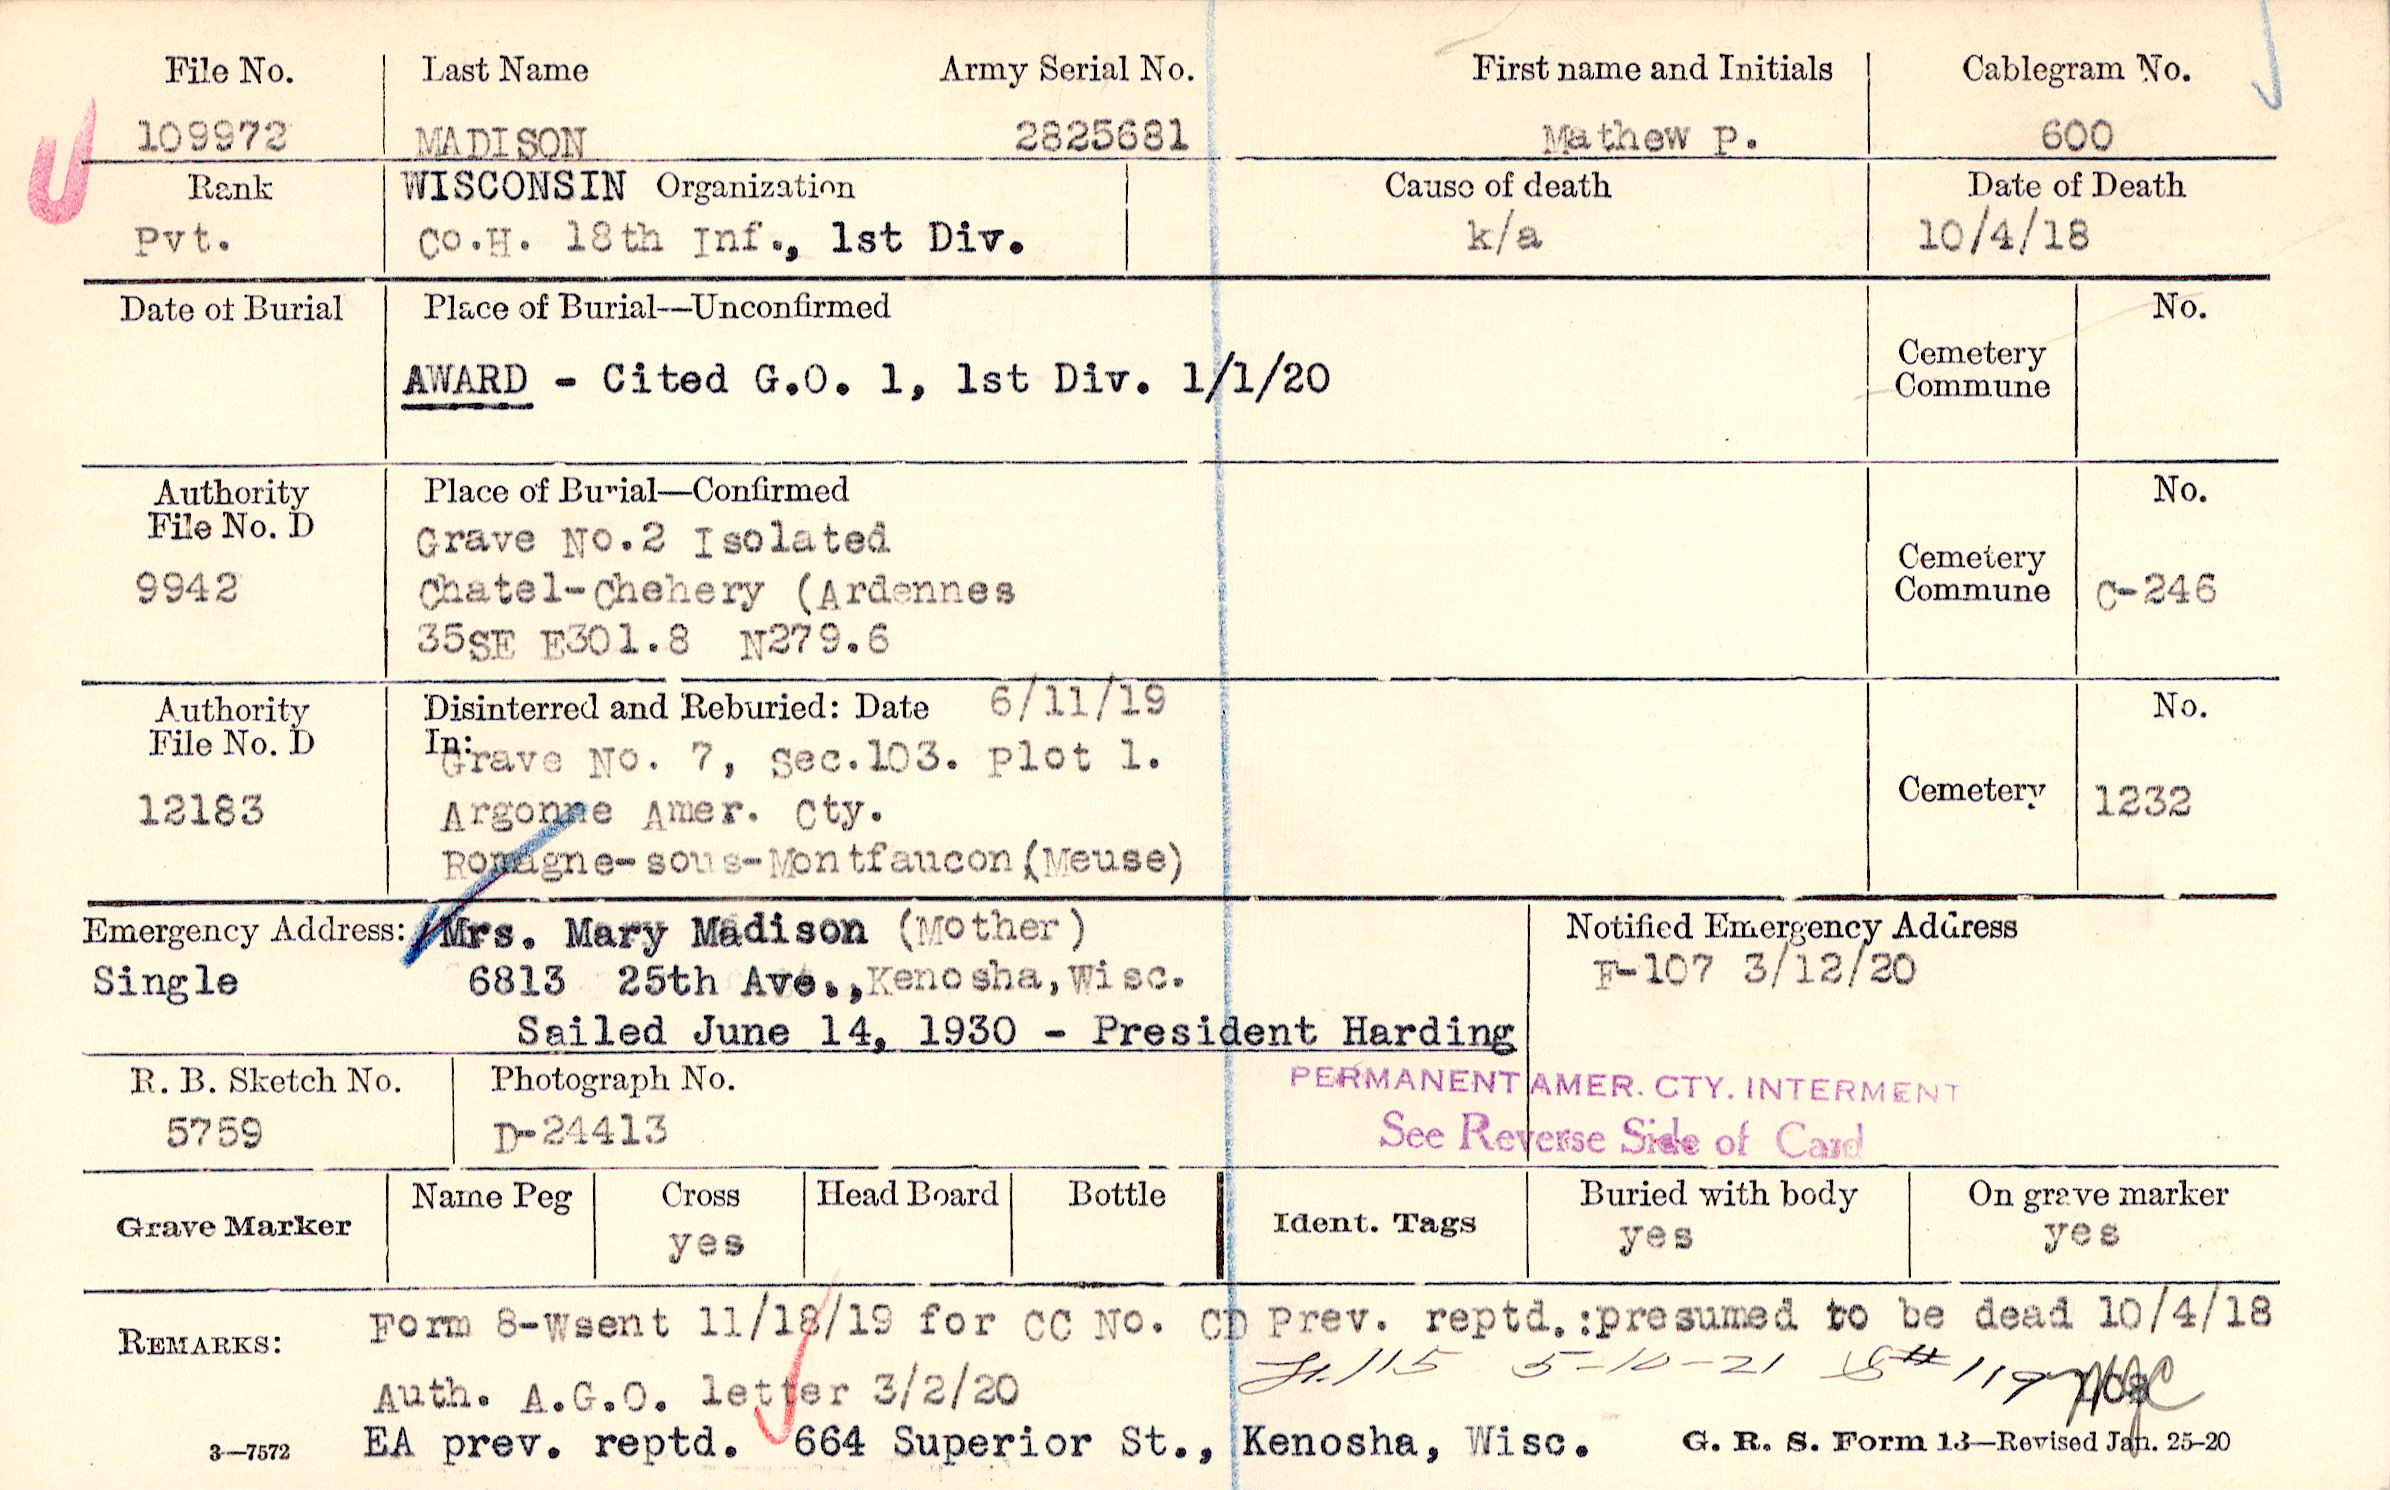 File No. Last Name Army Serial No. First name and Initials Cablegram No.
109972 MADISON 2825681 Mathew P. 600
Rank WISCONSIN Organization Cause of death Date of Death
Pvt. Co.H. 18th Inf., 1st Div. k/a 10/4/18
Date of Burial Place of Burial—Unconfirmed No.
Cemetery
Commune
AWARD - Cited G.O. 1, 1st Div. 1/1/20
Authority Place of Burial—Confirmed No.
File No. D Grave No.2 Isolated
9942 Chatel-Chehery (Ardennes Cemetery
Commune C-246
35SE E301.8 N279.6
Authority Disinterred and Reburied: Date 6/11/19 No.
File No. D In: Grave No. 7, Sec.103. Plot 1.
12183 Argonne Amer. Cty. Cemetery 1232
Romagne-sous-Montfaucon(Meuse)
Emergency Address: Mrs. Mary Madison (Mother) Notified Emergency Address
Single 6813 25th Ave.,Kenosha,Wisc. F-107 3/12/20
Sailed June 14, 1930 - President Harding
R. B. Sketch No. Photograph No. PERMANENT AMER. CTY. INTERMENT
5759 D-24413 See Reverse Side of Card
Grave Marker Name Peg Cross Head Board Bottle Ident. Tags Buried with body On grave marker
yes yes yes
REMARKS: Form 8-Wsent 11/18/19 for CC No. CD Prev. reptd.:presumed to be dead 10/4/18
115 5-10-21 #119
Auth. A.G.O. letter 3/2/20
3—7572 EA prev. reptd. 664 Superior St., Kenosha, Wisc. G. R. S. Form 13—Revised Jan. 25-20